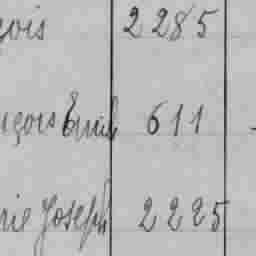 çois 2285
nçois Emile 611
rie Joseph 2225